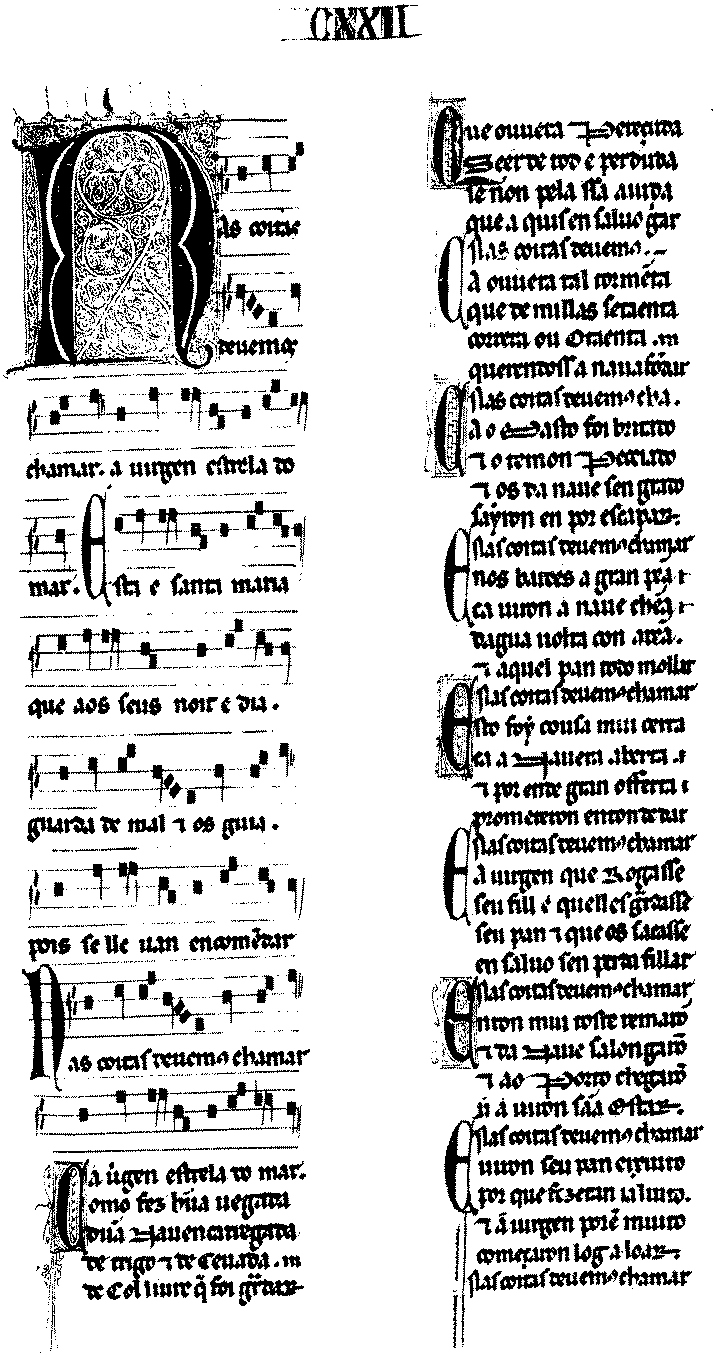 CXXII
Nas coitas
deuemos
chamar. a uirgen estrela do
mar. Esta é santa maria
que aos seus noit e dia.
guarda de mal ⁊ os guia.
pois se lle uan encomẽdar
Nas coitas deuemos chamar
a uirgen estrela do mar.
Como fez hũa uegada
dũa Naue encarregada
de trigo ⁊ de Ceuada. ⁊
de Col liure q̃ foi gũardar
Que ouuera Pereçuda
Seer de tod e perduda
se non pela sa aiuda
que a quis en saluo gũar
Nas coitas deuemos.
Ca ouuera tal tormẽta
que de millas setaenta
correra ou Oitaenta. ⁊
querendoss a naua afondar
Nas coitas deuemos cha.
Ca o Masto foi britado
⁊ o temon Peciado
⁊ os da naue sen grado
sayron en por escapar.
Nas coitas deuemos chamar
Enos bates a gran pra
ca uiron a naue chẽa
dagua uolta con arẽa.
⁊ aquel pan todo mollar
Nas coitas deuemos chamar
Esto foy cousa mui certa
ca a Naue era aberta.
⁊ por ende gran offerta
prometeron enton de dar
Nas coitas deuemos chamar
A uirgen que Rogasse
seu fill e que lles gũardasse
seu pan ⁊ que os sacasse
en saluo sen perda fillar
Nas coitas deuemos chamar
Enton mui toste remarõ
⁊ da Naue salongarõ
⁊ ao Porto chegarõ
ú a uiron sãa Estar.
Nas coitas deuemos chamar
E uiron seu pan enxuito
por que fezeran ia luito.
⁊ á uirgen porẽ muito
começaron log a loar
Nas coitas deuemos chamar